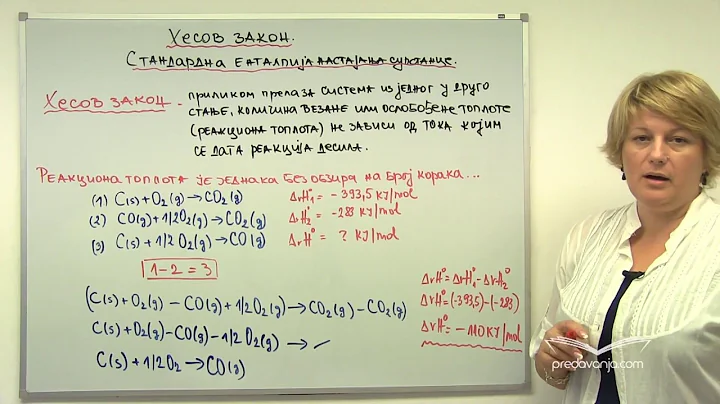 Хесов закон.
Стандардна енталпија настајања супстанце.
Хесов закон - приликом прелаза система из једног у друго
стање, количина везане или ослобођене топлоте
(реакциона топлота) не зависи од тока којим
се дата реакција десила.
Реакциона топлота је једнака без обзира на број корака...
(1) C(s)+O₂(g)→CO₂(g) ΔrH₁° = -393,5 kJ/mol
(2) CO(g)+1/2O₂(g)→CO₂(g) ΔrH₂° = -283 kJ/mol
(3) C(s)+1/2O₂(g)→CO(g) ΔrH° = ? kJ/mol
1-2=3
(C(s)+O₂(g)-CO(g)+1/2O₂(g)→CO₂(g)-CO₂(g)
C(s)+O₂(g)-CO(g)-1/2O₂(g)→
C(s)+1/2O₂→CO(g)
ΔrH°=ΔrH₁°-ΔrH₂°
ΔrH°=(-393,5)-(-283)
ΔrH°=-110 kJ/mol
predavanja.com